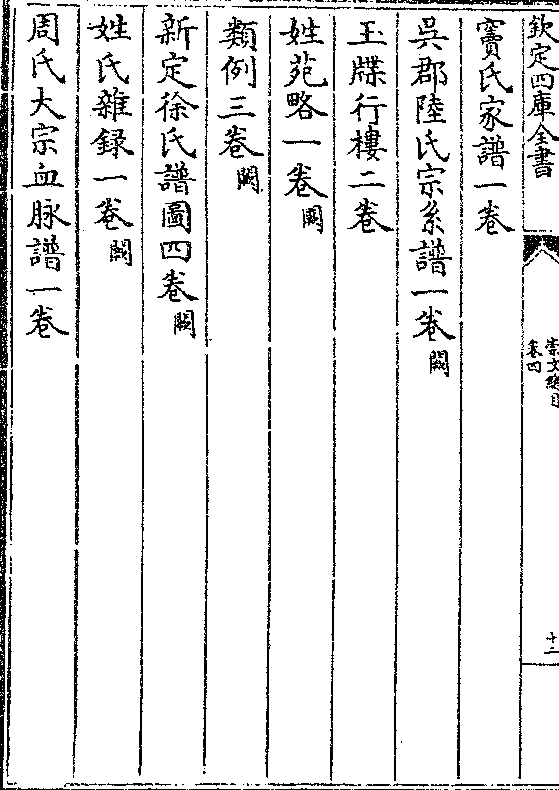 欽定四庫全書
崇文總目
卷四
十二
竇氏家譜一卷
吳郡陸氏宗系譜一卷闕
玉牒行樓二卷
姓苑略一卷闕
類例三卷闕
新定徐氏譜圖四卷闕
姓氏雜録一卷闕
周氏大宗血脉譜一卷